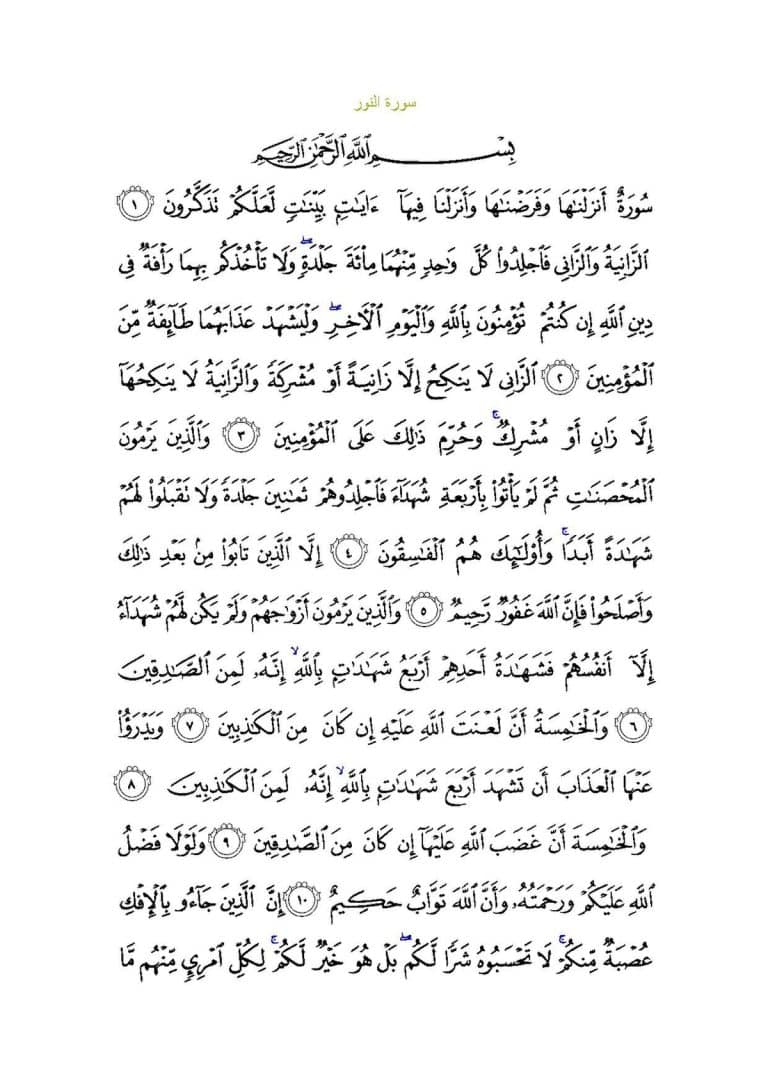 سورة النور
بِسْمِ ٱللَّهِ ٱلرَّحْمَٰنِ ٱلرَّحِيمِ
سُورَةٌ أَنزَلْنَٰهَا وَفَرَضْنَٰهَا وَأَنزَلْنَا فِيهَآ ءَايَٰتٍۭ بَيِّنَٰتٍ لَّعَلَّكُمْ تَذَكَّرُونَ ١
ٱلزَّانِيَةُ وَٱلزَّانِى فَٱجْلِدُوا۟ كُلَّ وَٰحِدٍ مِّنْهُمَا مِا۟ئَةَ جَلْدَةٍ ۖ وَلَا تَأْخُذْكُم بِهِمَا رَأْفَةٌ فِى
دِينِ ٱللَّهِ إِن كُنتُمْ تُؤْمِنُونَ بِٱللَّهِ وَٱلْيَوْمِ ٱلْءَاخِرِ ۖ وَلْيَشْهَدْ عَذَابَهُمَا طَآئِفَةٌ مِّنَ
ٱلْمُؤْمِنِينَ ٢ ٱلزَّانِى لَا يَنكِحُ إِلَّا زَانِيَةً أَوْ مُشْرِكَةً وَٱلزَّانِيَةُ لَا يَنكِحُهَآ
إِلَّا زَانٍ أَوْ مُشْرِكٌ ۚ وَحُرِّمَ ذَٰلِكَ عَلَى ٱلْمُؤْمِنِينَ ٣ وَٱلَّذِينَ يَرْمُونَ
ٱلْمُحْصَنَٰتِ ثُمَّ لَمْ يَأْتُوا۟ بِأَرْبَعَةِ شُهَدَآءَ فَٱجْلِدُوهُمْ ثَمَٰنِينَ جَلْدَةً وَلَا تَقْبَلُوا۟ لَهُمْ
شَهَٰدَةً أَبَدًا ۚ وَأُو۟لَٰٓئِكَ هُمُ ٱلْفَٰسِقُونَ ٤ إِلَّا ٱلَّذِينَ تَابُوا۟ مِنۢ بَعْدِ ذَٰلِكَ
وَأَصْلَحُوا۟ فَإِنَّ ٱللَّهَ غَفُورٌ رَّحِيمٌ ٥ وَٱلَّذِينَ يَرْمُونَ أَزْوَٰجَهُمْ وَلَمْ يَكُن لَّهُمْ شُهَدَآءُ
إِلَّآ أَنفُسُهُمْ فَشَهَٰدَةُ أَحَدِهِمْ أَرْبَعُ شَهَٰدَٰتٍۭ بِٱللَّهِ ۙ إِنَّهُۥ لَمِنَ ٱلصَّٰدِقِينَ
٦ وَٱلْخَٰمِسَةُ أَنَّ لَعْنَتَ ٱللَّهِ عَلَيْهِ إِن كَانَ مِنَ ٱلْكَٰذِبِينَ ٧ وَيَدْرَؤُا۟
عَنْهَا ٱلْعَذَابَ أَن تَشْهَدَ أَرْبَعَ شَهَٰدَٰتٍۭ بِٱللَّهِ ۙ إِنَّهُۥ لَمِنَ ٱلْكَٰذِبِينَ ٨
وَٱلْخَٰمِسَةَ أَنَّ غَضَبَ ٱللَّهِ عَلَيْهَآ إِن كَانَ مِنَ ٱلصَّٰدِقِينَ ٩ وَلَوْلَا فَضْلُ
ٱللَّهِ عَلَيْكُمْ وَرَحْمَتُهُۥ وَأَنَّ ٱللَّهَ تَوَّابٌ حَكِيمٌ ١٠ إِنَّ ٱلَّذِينَ جَآءُو بِٱلْإِفْكِ
عُصْبَةٌ مِّنكُمْ ۚ لَا تَحْسَبُوهُ شَرًّا لَّكُم ۖ بَلْ هُوَ خَيْرٌ لَّكُمْ ۚ لِكُلِّ ٱمْرِئٍ مِّنْهُم مَّا